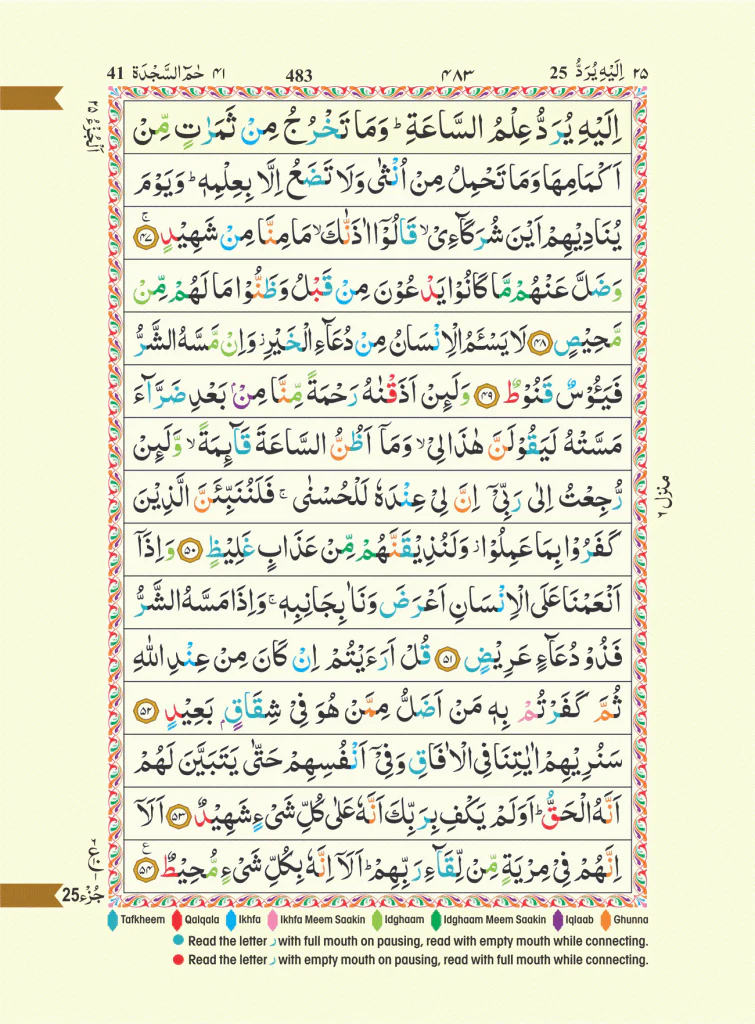 41 حٰمٓ السَّجْدَة ۴۱ 483 ۴۸۳ 25 اِلَيْهِ يُرَدُّ ۲۵
اَلْجُزْءُ ۲۵
اِلَيْهِ يُرَدُّ عِلْمُ السَّاعَةِ ؕ وَمَا تَخْرُجُ مِنْ ثَمَرٰتٍ مِّنْ
اَكْمَامِهَا وَمَا تَحْمِلُ مِنْ اُنْثٰى وَلَا تَضَعُ اِلَّا بِعِلْمِهٖ ؕ وَيَوْمَ
يُنَادِيْهِمْ اَيْنَ شُرَكَآءِىْ ۙ قَالُوْۤا اٰذَنّٰكَ ۙ مَا مِنَّا مِنْ شَهِيْدٍ ۚ ﴿۴۷﴾
وَضَلَّ عَنْهُمْ مَّا كَانُوْا يَدْعُوْنَ مِنْ قَبْلُ وَظَنُّوْا مَا لَهُمْ مِّنْ
مَّحِيْصٍ ﴿۴۸﴾ لَا يَسْـَٔمُ الْاِنْسَانُ مِنْ دُعَآءِ الْخَيْرِ ز وَاِنْ مَّسَّهُ الشَّرُّ
فَيَـُٔوْسٌ قَنُوْطٌ ﴿۴۹﴾ وَلَئِنْ اَذَقْنٰهُ رَحْمَةً مِّنَّا مِنْۢ بَعْدِ ضَرَّآءَ
مَسَّتْهُ لَيَقُوْلَنَّ هٰذَا لِىْ ۙ وَمَاۤ اَظُنُّ السَّاعَةَ قَآئِمَةً ۙ وَّلَئِنْ
رُّجِعْتُ اِلٰى رَبِّىْۤ اِنَّ لِىْ عِنْدَهٗ لَلْحُسْنٰى ۚ فَلَنُنَبِّئَنَّ الَّذِيْنَ
كَفَرُوْا بِمَا عَمِلُوْا ز وَلَنُذِيْقَنَّهُمْ مِّنْ عَذَابٍ غَلِيْظٍ ﴿۵۰﴾ وَاِذَاۤ
اَنْعَمْنَا عَلَى الْاِنْسَانِ اَعْرَضَ وَنَاٰ بِجَانِبِهٖ ۚ وَاِذَا مَسَّهُ الشَّرُّ
فَذُوْ دُعَآءٍ عَرِيْضٍ ﴿۵۱﴾ قُلْ اَرَءَيْتُمْ اِنْ كَانَ مِنْ عِنْدِ اللّٰهِ
ثُمَّ كَفَرْتُمْ بِهٖ مَنْ اَضَلُّ مِمَّنْ هُوَ فِىْ شِقَاقٍۭ بَعِيْدٍ ﴿۵۲﴾
سَنُرِيْهِمْ اٰيٰتِنَا فِى الْاٰفَاقِ وَفِىْۤ اَنْفُسِهِمْ حَتّٰى يَتَبَيَّنَ لَهُمْ
اَنَّهُ الْحَقُّ ؕ اَوَلَمْ يَكْفِ بِرَبِّكَ اَنَّهٗ عَلٰى كُلِّ شَىْءٍ شَهِيْدٌ ﴿۵۳﴾ اَلَاۤ
اِنَّهُمْ فِىْ مِرْيَةٍ مِّنْ لِّقَآءِ رَبِّهِمْ ؕ اَلَاۤ اِنَّهٗ بِكُلِّ شَىْءٍ مُّحِيْطٌ ﴿۵۴﴾ ع
منزل ۶
جُزْء 25
Tafkheem Qalqala Ikhfa Ikhfa Meem Saakin Idghaam Idghaam Meem Saakin Iqlaab Ghunna
Read the letter ر with full mouth on pausing, read with empty mouth while connecting.
Read the letter ر with empty mouth on pausing, read with full mouth while connecting.